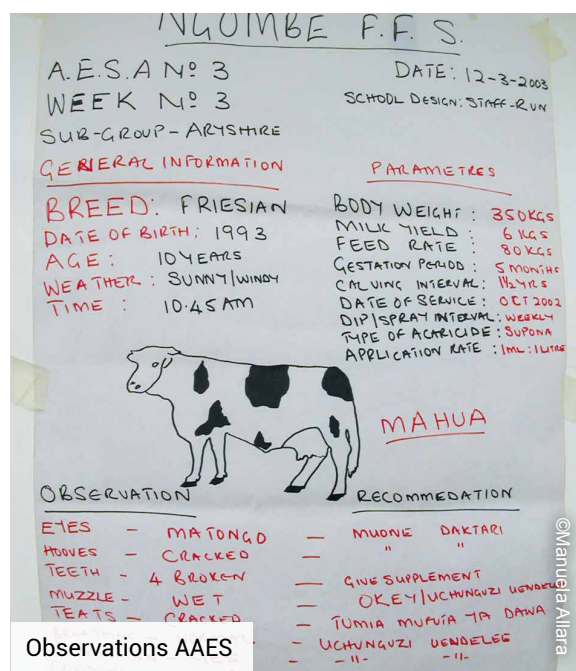 NGOMBE F.F.S.
A.E.S.A Nº 3
DATE: 12-3-2003
WEEK Nº 3
SCHOOL DESIGN: STAFF-RUN
SUB-GROUP-ARYSHIRE
GENERAL INFORMATION
PARAMETRES
BREED: FRIESIAN
DATE OF BIRTH: 1993
AGE: 10 YEARS
WEATHER: SUNNY/WINDY
TIME: 10.45 AM
BODY WEIGHT: 350KGS
MILK YIELD: 6 KGS
FEED RATE: 80 KGS
GESTATION PERIOD: 5 MONTHS
CALVING INTERVAL: 1½ YRS
DATE OF SERVICE: OCT 2002
DIP/SPRAY INTERVAL: WEEKLY
TYPE OF ACARICIDE: SUPONA
APPLICATION RATE: 1ML:1LITRE
MAHUA
OBSERVATION RECOMMEDATION
EYES - MATONGO - MUONE DAKTARI
HOOVES - CRACKED - " "
TEETH - 4 BROKEN - GIVE SUPPLEMENT
MUZZLE - WET - OKEY/UCHUNGUZI UENDELEE
TEATS - CRACKED - TUMIA MUFUTA YA DAWA
- UCHUNGUZI UENDELEE
- -"- -"-
Observations AAES
©Manuela Allara